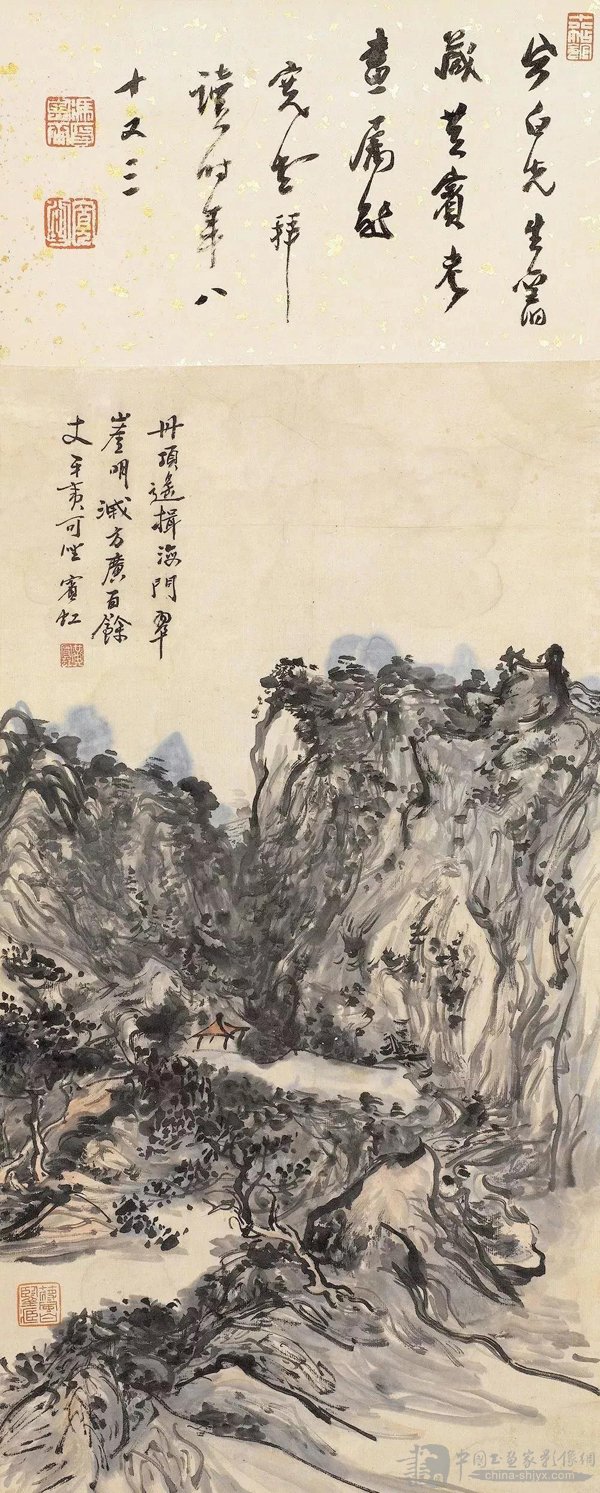 白先生舊
藏黃賓老
畫屬題
寬堂拜
讀時年八
十又三
丹頂遙揖海門翠
崖明滅方廣百餘
丈平夷可坐賓虹
中國书画家影像網
china-shjyx.com